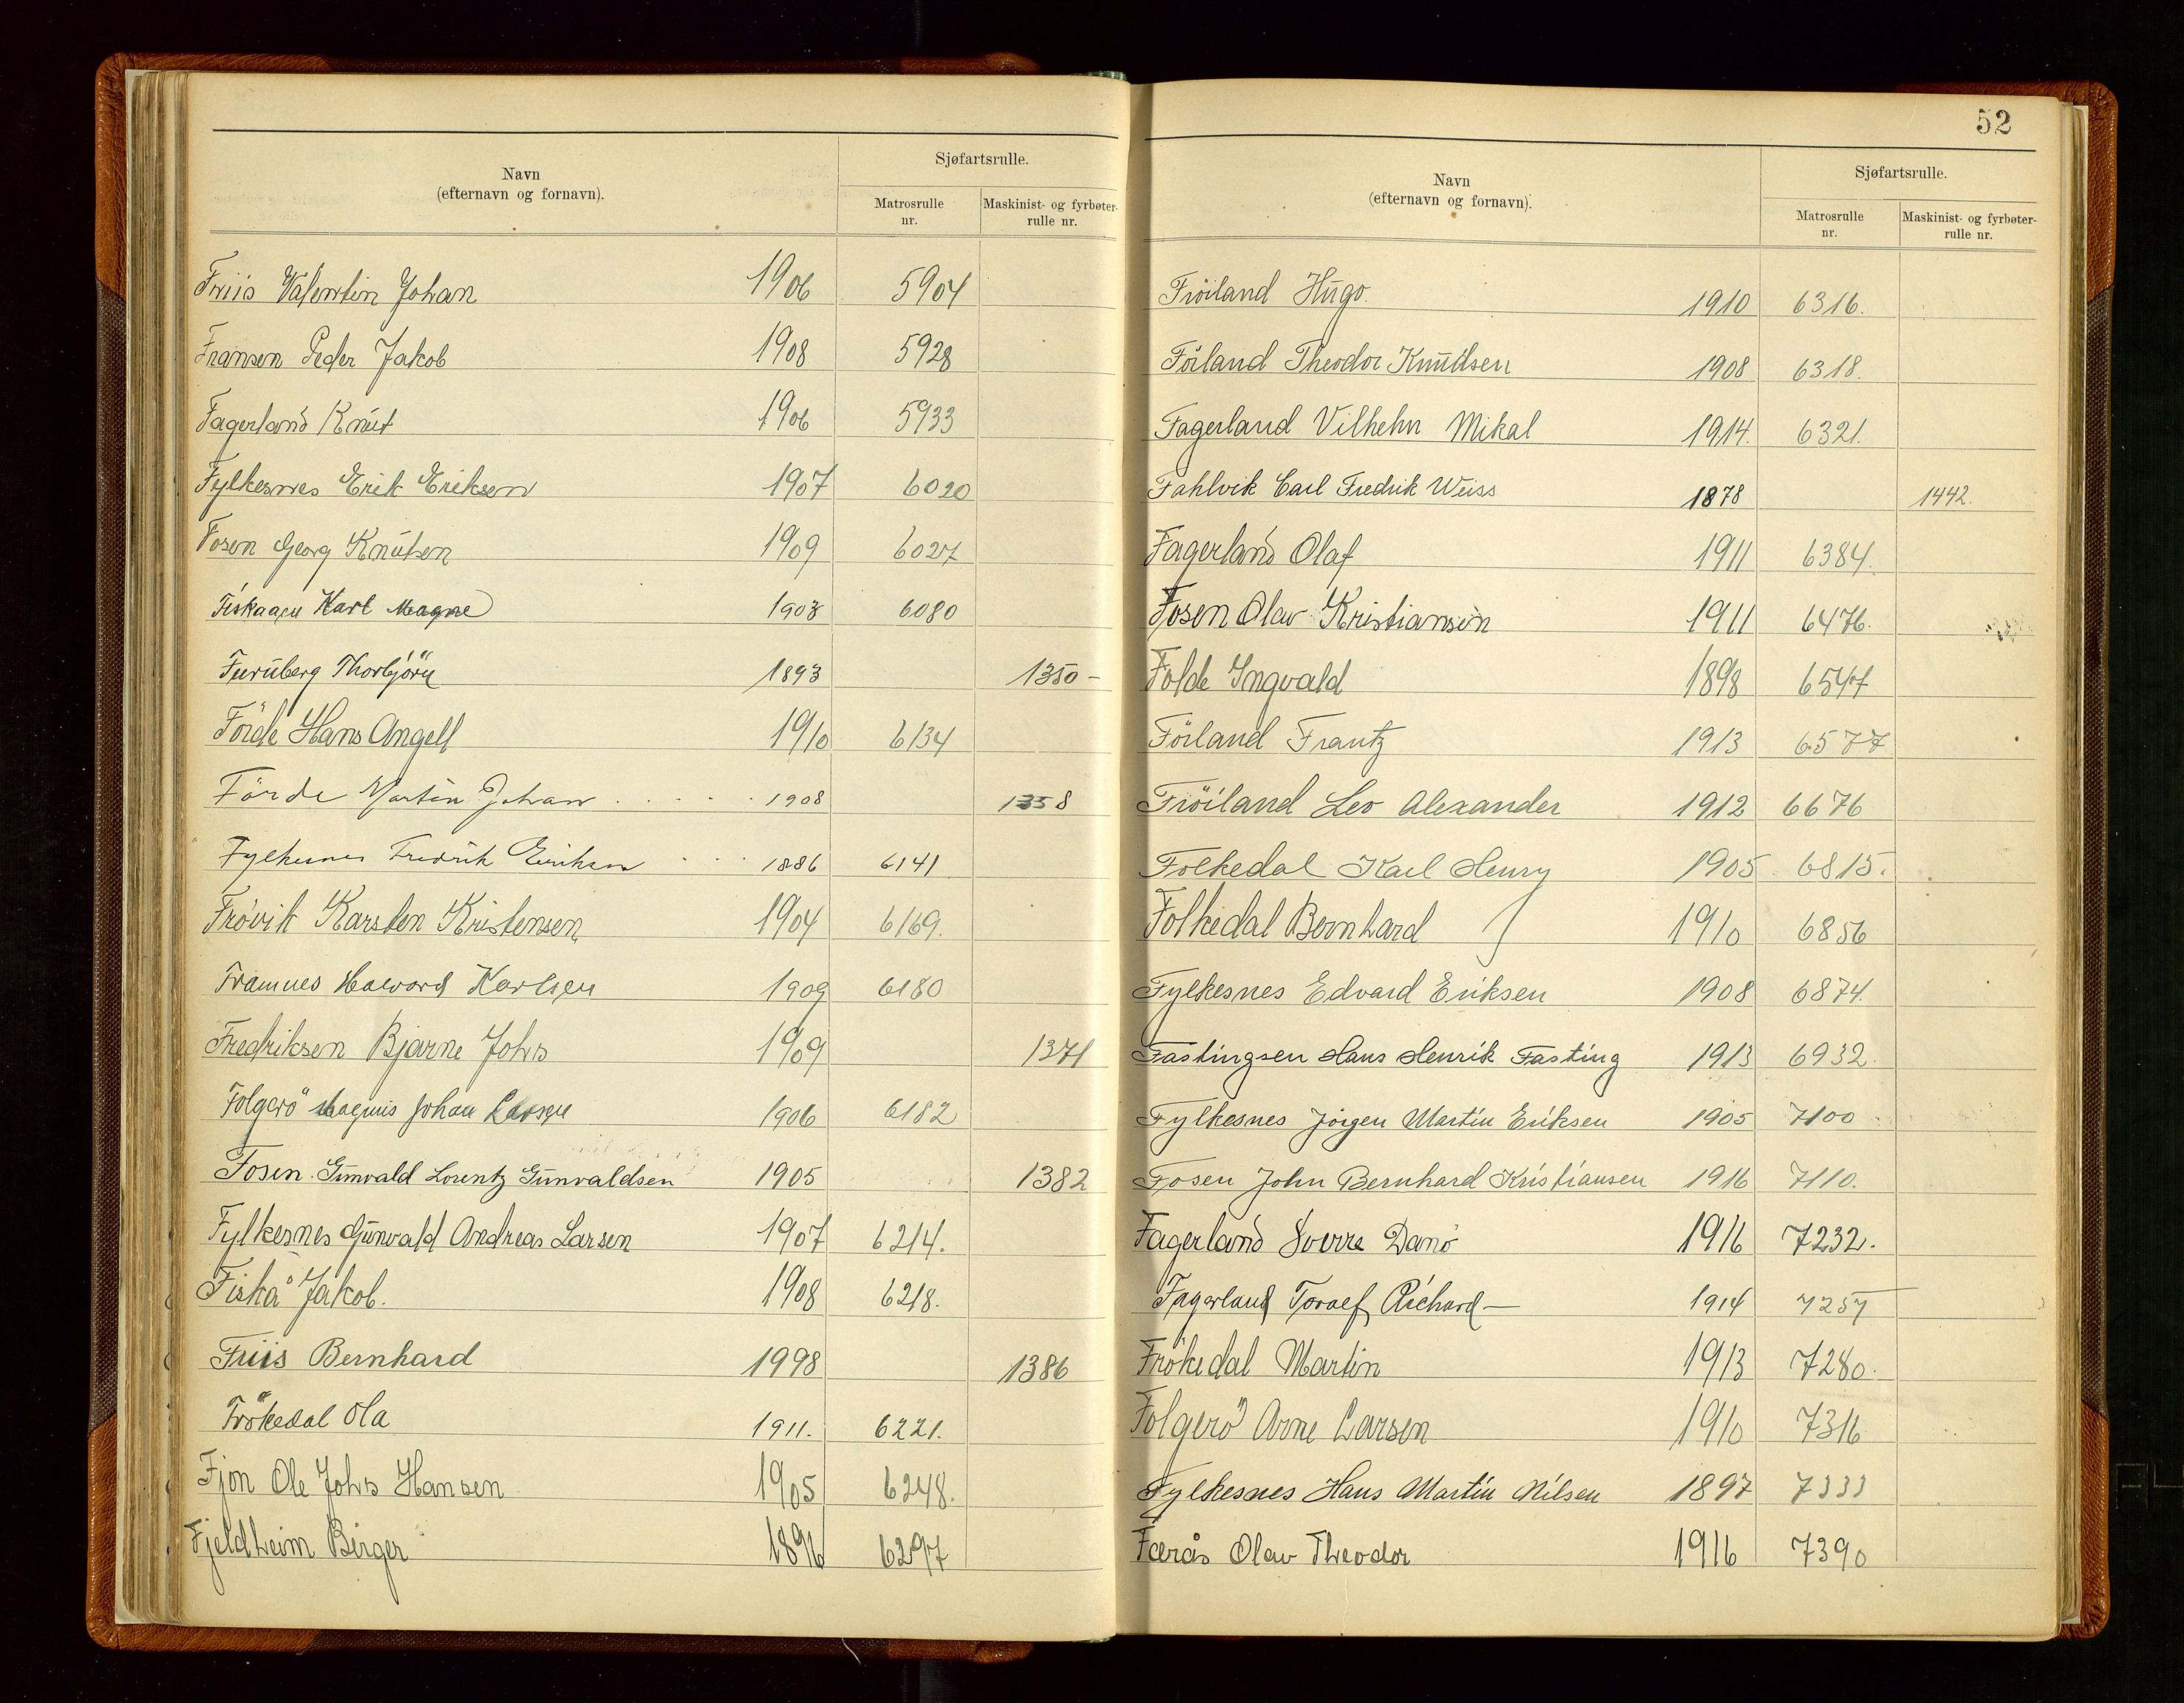 Navn
(efternavn og fornavn).
Sjøfartsrulle.
Matrosrulle nr.
Maskinist- og fyrbøter-rulle nr.
Friis Valentin Johan 1906 5904
Fransen Peder Jakob 1908 5928
Fagerland Knut 1906 5933
Fylkesnes Erik Eriksen 1907 6020
Fosen Georg Knutsen 1909 6027
Fiskaaen Karl Magne 1903 6080
Furuberg Thorbjörn 1893 1350 -
Förde Hans Angell 1910 6134
Förde Martin Johan . . . . . 1908 1358
Fylkesnes Fredrik Eriksen . . . 1886 6141
Frövik Karsten Kristensen 1904 6169.
Framnes Halvard Karlsen 1909 6180
Fredriksen Bjarne Johs 1909 1371
Folgerö Magnus Johan Larsen 1906 6182
Fosen Gunvald Lorentz Gunvaldsen 1905 1382
Fylkesnes Gunvald Andreas Larsen 1907 6214.
Fiskå Jakob. 1908 6218.
Friis Bernhard 1998 1386
Frökedal Ola 1911. 6221.
Fjon Ole Johs Hansen 1905 6248.
Fjeldheim Birger 1896 6297
52
Navn
(efternavn og fornavn).
Sjøfartsrulle.
Matrosrulle nr.
Maskinist- og fyrbøter-rulle nr.
Fröiland Hugo. 1910 6316.
Föiland Theodor Knudsen 1908 6318.
Fagerland Vilhelm Mikal 1914. 6321.
Fahlvik Carl Fredrik Weiss 1878 1442.
Fagerland Olaf 1911 6384.
Fosen Olav Kristiansen 1911 6476.
Folde Ingvald 1898 6547
Föiland Frantz 1913 6577
Fröiland Leo Alexander 1912 6676
Folkedal Karl Henry 1905 6815.
Folkedal Bernhard 1910 6856
Fylkesnes Edvard Eriksen 1908 6874.
Fastingsen Hans Henrik Fasting 1913 6932.
Fylkesnes Jörgen Martin Eriksen 1905 7100
Fosen John Bernhard Kristiansen 1916 7110.
Fagerland Sverre Danö 1916 7232.
Fagerland Toralf Richard — 1914 7257
Frökedal Martin 1913 7280.
Folgerö Arne Larsen 1910 7316
Fylkesnes Hans Martin Nilsen 1897 7333
Færås Olav Theodor 1916 7390